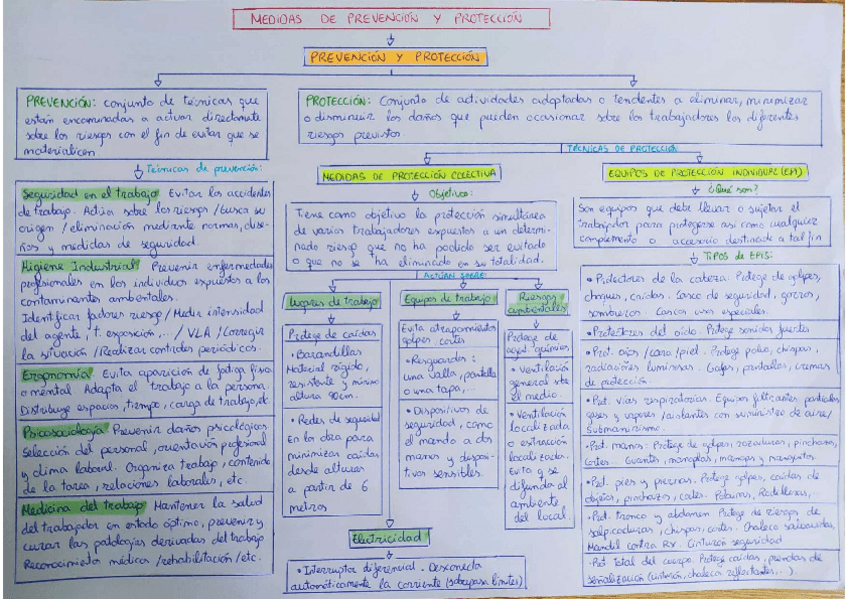 MEDIDAS DE PREVENCIÓN Y PROTECCIÓN
PREVENCIÓN Y PROTECCIÓN
PREVENCIÓN: conjunto de técnicas que
están encaminadas a actuar directamente
sobre los riesgos con el fin de evitar que se
materialicen
Técnicas de prevención:
Seguridad en el trabajo Evitar los accidentes
de trabajo. Actúa sobre los riesgos / busca su
origen / eliminación mediante normas, dise-
ños y medidas de seguridad.
Higiene Industrial Prevenir enfermedades
profesionales en los individuos expuestos a los
contaminantes ambientales.
Identificar factores riesgo / Medir intensidad
del agente, t. exposición,... / VLA / Corregir
la situación / Realizar controles periódicos.
Ergonomía Evita aparición de fatiga física
o mental. Adapta el trabajo a la persona.
Distribuye espacios, tiempo, carga de trabajo, etc.
Psicosociología Prevenir daños psicológicos
Selección del personal, orientación profesional
y clima laboral. Organiza trabajo, contenido
de la tarea, relaciones laborales, etc.
Medicina del trabajo Mantener la salud
del trabajador en estado óptimo, prevenir y
curar las patologías derivadas del trabajo
Reconocimientos médicos / rehabilitación / etc.
PROTECCIÓN: Conjunto de actividades adoptadas o tendentes a eliminar, minimizar
o disminuir los daños que pueden ocasionar sobre los trabajadores los diferentes
riesgos previstos
TÉCNICAS DE PROTECCIÓN
MEDIDAS DE PROTECCIÓN COLECTIVA
Objetivos:
Tiene como objetivo la protección simultánea
de varios trabajadores expuestos a un determi-
nado riesgo que no ha podido ser evitado
o que no se ha eliminado en su totalidad.
ACTÚAN SOBRE:
Lugares de trabajo
Protege de caídas
• Barandillas
Material rígido,
resistente y mínimo
altura 90cm.
• Redes de seguridad
En la obra para
minimizar caídas
desde alturas
a partir de 6
metros
Equipos de trabajo
Evita atrapamientos
golpes, cortes
• Resguardos:
una valla, pantalla
o una tapa,...
• Dispositivos de
seguridad, como
el mando a dos
manos y disposi-
tivos sensibles.
Riesgos
ambientales
Protege de
agent. químicos
• Ventilación
general sobre
el medio.
• Ventilación
localizada
o extracción
localizada.
Evita q se
difunda al
ambiente
del local
Electricidad
• Interruptor diferencial. Desconecta
automáticamente la corriente (sobrepasa límites)
EQUIPOS DE PROTECCIÓN INDIVIDUAL (EPI)
¿Qué son?
Son equipos que debe llevar o sujetar el
trabajador para protegerse así como cualquier
complemento o accesorio destinado a tal fin
TIPOS DE EPIS:
• Protectores de la cabeza. Protege de golpes,
choques, caídas. Casco de seguridad, gorros,
sombreros. Cascos usos especiales.
• Protectores del oído. Protege sonidos fuertes
• Prot. ojos / cara / piel. Protege polvo, chispas,
radiaciones luminosas. Gafas, pantallas, cremas
de protección.
• Prot. vías respiratorias. Equipos filtrantes partículas
gases y vapores / aislantes con suministro de aire /
submarinismo.
• Prot. manos: Protege de golpes, rozaduras, pinchazos,
cortes. Guantes, manoplas, mangas y manguitos.
• Prot. pies y piernas. Protege golpes, caídas de
objetos, pinchazos, calor. Polainas, Rodilleras,...
• Prot. tronco y abdomen Protege de riesgos de
salpicaduras, chispas, cortes. Chaleco salvavidas,
Mandil contra Rx. Cinturón seguridad
• Prot total del cuerpo. Protege caídas, prendas de
señalización (cinturón, chaleco reflectantes,...).